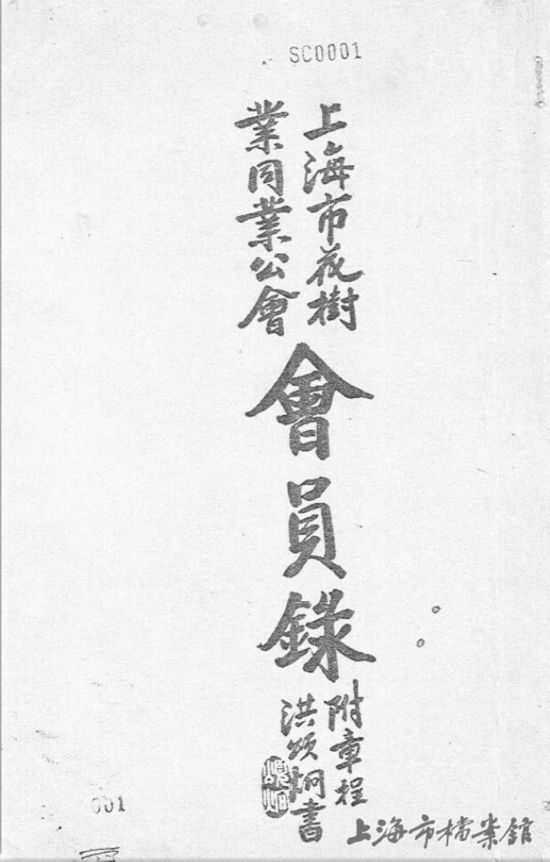 SC0001
上海市花樹
業同業公會
會員錄
附章程
洪頌炯書
001
上海市檔案館